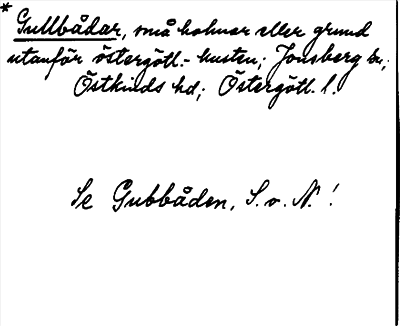 * Gullbådar, små holmar eller grund
utanför östergötl.- kusten; Jonsberg sn,;
Östkinds hd; Östergötl. l.
Se Gubbåden, S. o. N.!